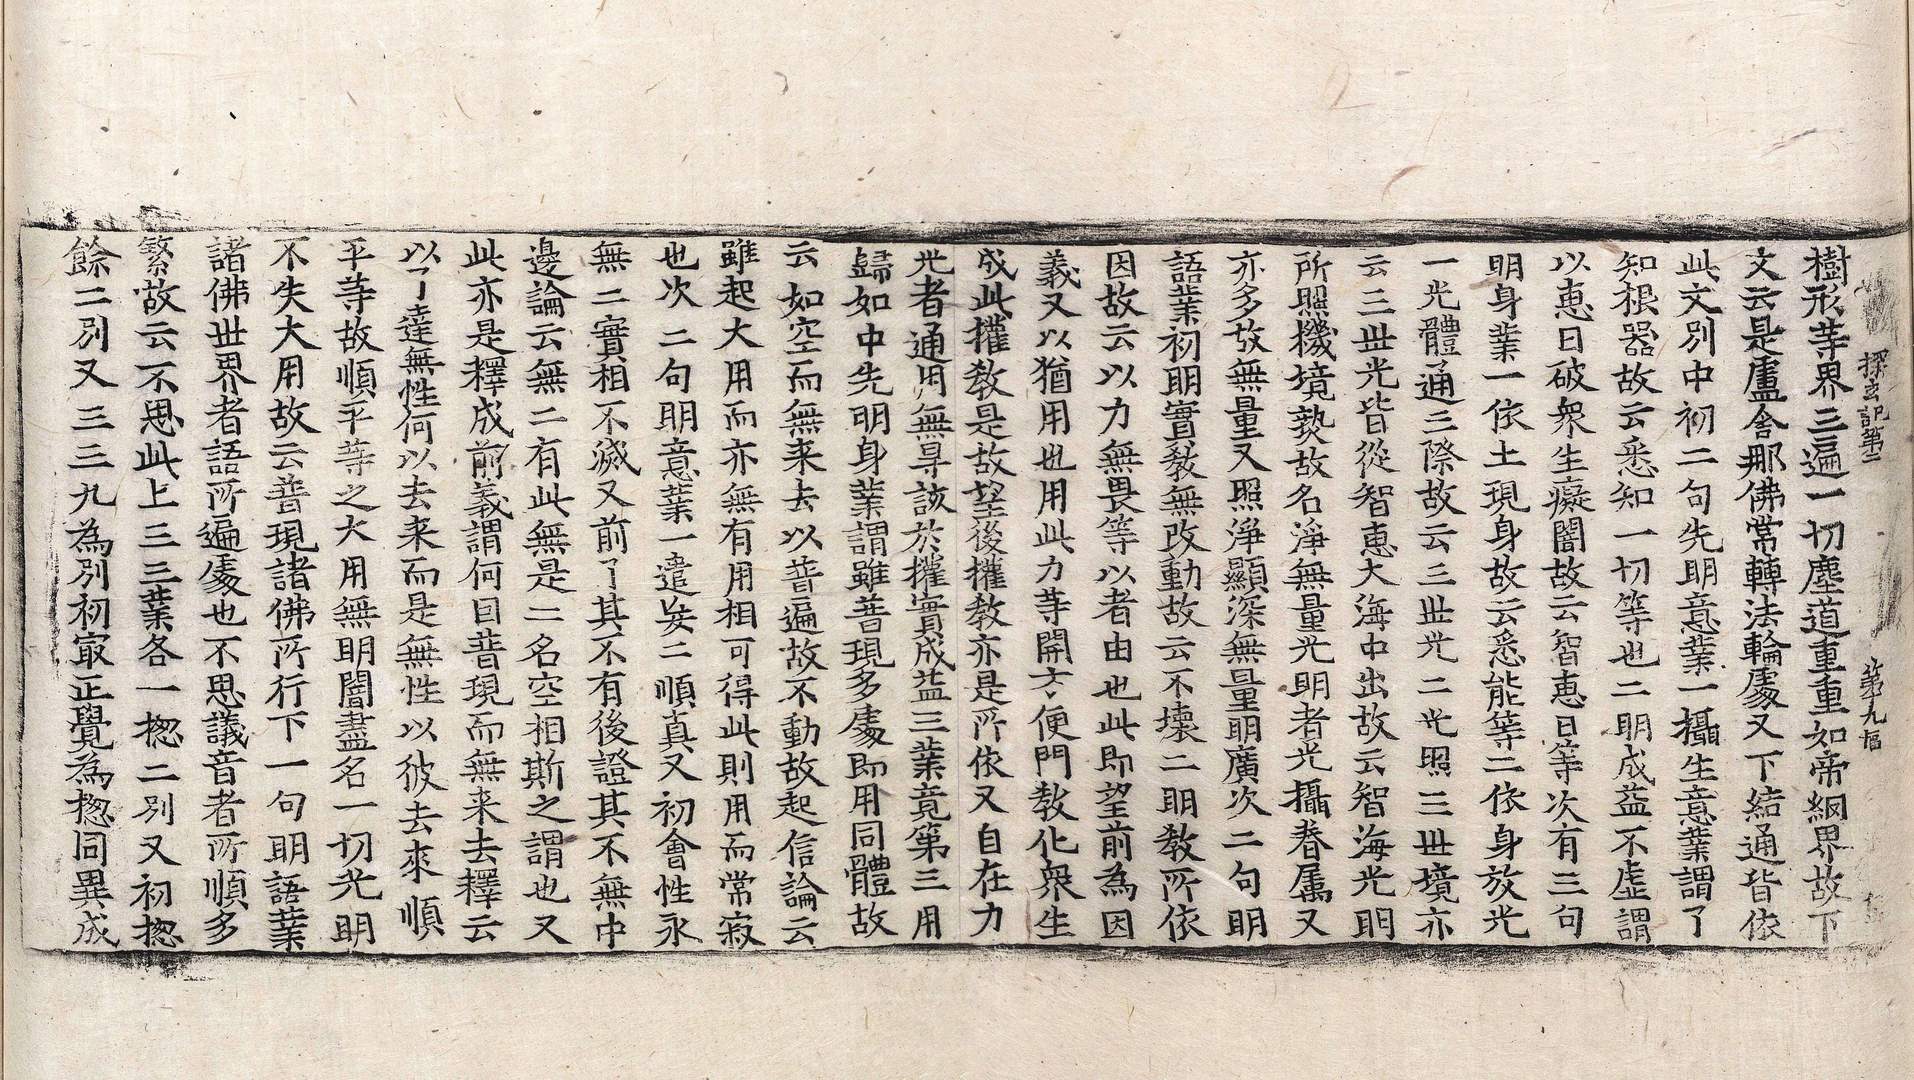 探玄記第二 第九幅
樹形等界三遍一切塵道重重如帝網界故下
文云是盧舍那佛常轉法輪處又下結通皆依
此文別中初二句先明意業一攝生意業謂了
知根器故云悉知一切等也二明成益不虛謂
以惠日破衆生癡闇故云智惠日等次有三句
明身業一依土現身故云悉能等二依身放光
一光體通三際故云三世光二光照三世境亦
云三世光皆從智惠大海中出故云智海光明
所照機境㸑故名淨無量光明者光攝眷属又
亦多故無量又照淨顯深無量明廣次二句明
語業初明實教無改動故云不壊二明教所依
因故云以力無畏等以者由也此即望前為因
義又以猶用也用此力等開方便門教化衆生
成此權教是故望後權教亦是所依又自在力
光者通用無㝵該於權實成益三業竟第三用
歸如中先明身業謂雖普現多處即用同體故
云如空而無来去以普遍故不動故起信論云
雖起大用而亦無有用相可得此則用而常寂
也次二句明意業一遣妄二順真又初會性永
無二實相不滅又前了其不有後證其不無中
邊論云無二有此無是二名空相斯之謂也又
此亦是釋成前義謂何囙普現而無来去釋云
以了達無性何以去来而是無性以彼去來順
平等故順平等之大用無明闇盡名一切光明
不失大用故云普現諸佛所行下一句明語業
諸佛世界者語所遍處也不思議音者所順多
繁故云不思此上三三業各一揔二別又初揔
餘二別又三三九為別初㝡正覺為揔同異成